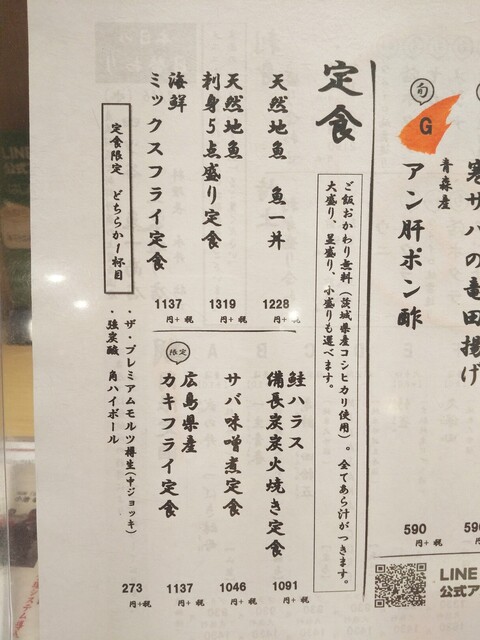 寒サバの竜田揚げ
590
旬
G
青森産
アン肝ポン酢
590
円+税
LINE
公式ア
定食
ご飯おかわり無料(茨城県産コシヒカリ使用)。全てあら汁がつきます。
大盛り、並盛り、小盛りも選べます。
天然地魚 魚一丼
1228
円+税
天然地魚
刺身5点盛り定食
1319
円+税
海鮮
ミックスフライ定食
1137
円+税
鮭ハラス
備長炭炭火焼き定食
1091
円+税
サバ味噌煮定食
1046
円+税
限定
広島県産
カキフライ定食
1137
円+税
定食限定 どちらか1杯目
・ザ・プレミアムモルツ樽生(中ジョッキ)
・強炭酸 角ハイボール
273
円+税